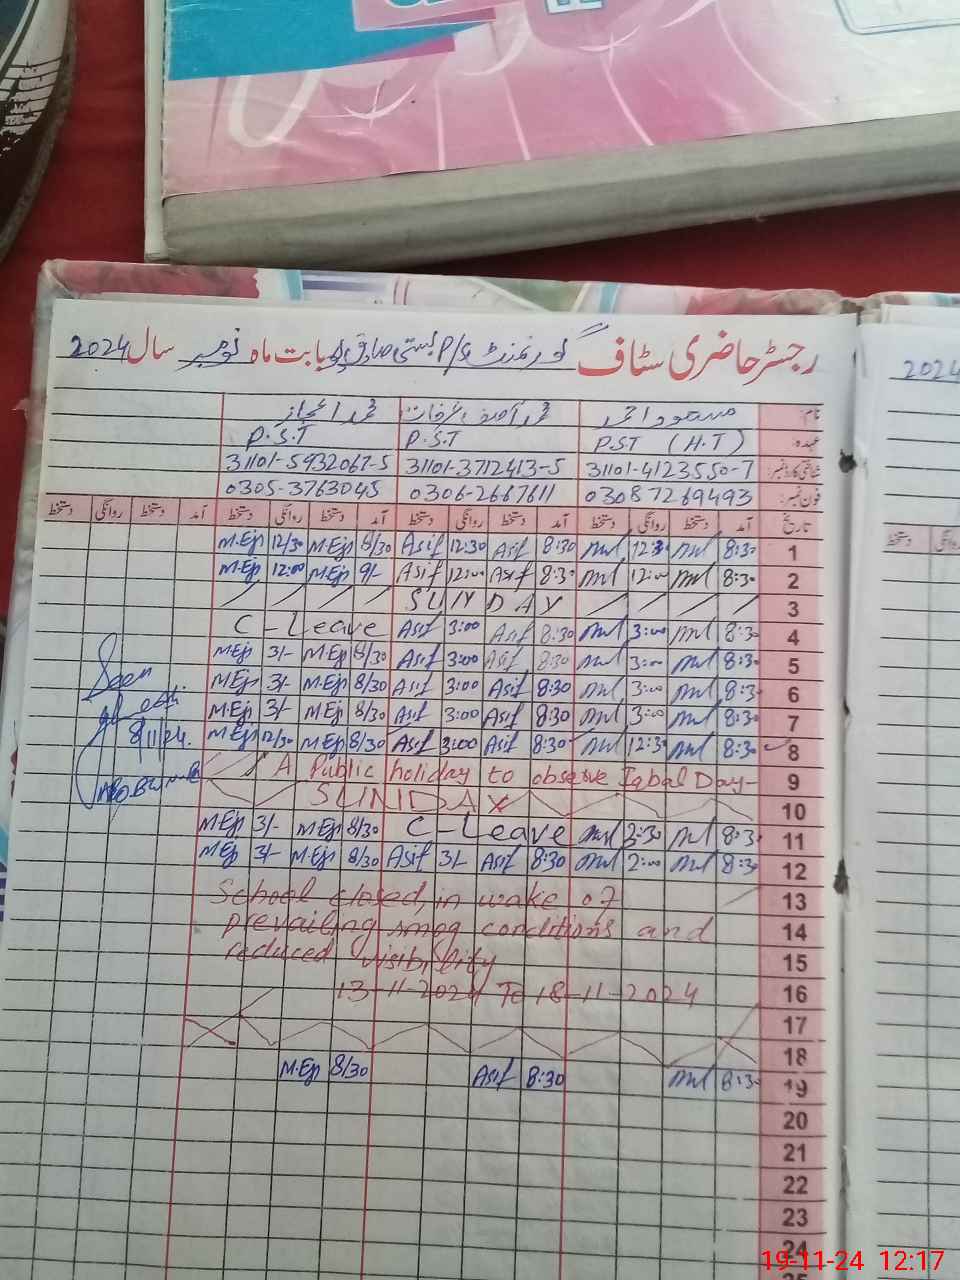 رجسٹر حاضری سٹاف گورنمنٹ P/S بستی صادق پور بابت ماہ نومبر سال 2024
2024
نام: مسعود احمد محمد آصف عرفات محمد اعجاز
عہدہ: P.S.T (H.T) P.S.T P.S.T
شناختی کارڈ نمبر: 31101-4123550-7 31101-3712413-5 31101-5932067-5
فون نمبر: 03087269493 0306-2667611 0305-3763045
تاریخ آمد دستخط روانگی دستخط آمد دستخط روانگی دستخط آمد دستخط روانگی دستخط آمد دستخط روانگی دستخط
دستخط
M.Ejj 12/30 M.Ejj 8/30 Asif 12:30 Asif 8:30 12:30 8:30 1
M.Ejj 12:00 M.Ejj 9/- Asif 12:00 Asif 8:30 12:00 8:30 2
SUNDAY 3
C-Leave Asif 3:00 Asif 8:30 3:00 8:30 4
M.Ejj 3/- M.Ejj 8/30 Asif 3:00 Asif 8:30 3:00 8:30 5
M.Ejj 3/- M.Ejj 8/30 Asif 3:00 Asif 8:30 3:00 8:30 6
M.Ejj 3/- M.Ejj 8/30 Asif 3:00 Asif 8:30 3:00 8:30 7
M.Ejj 12/30 M.Ejj 8/30 Asif 3:00 Asif 8:30 12:30 8:30 8
Seen
8/11/24.
A Public holiday to observe Iqbal Day- 9
SUNDAY 10
M.Ejj 3/- M.Ejj 8/30 C-Leave 2:30 8:30 11
M.Ejj 3/- M.Ejj 8/30 Asif 3/- Asif 8:30 2:00 8:30 12
School closed, in wake of 13
prevailing smog conditions and 14
reduced visibility 15
13-11-2024 To 18-11-2024 16
17
18
M.Ejj 8/30 Asif 8:30 8:30 19
20
21
22
23
24
25
19-11-24 12:17